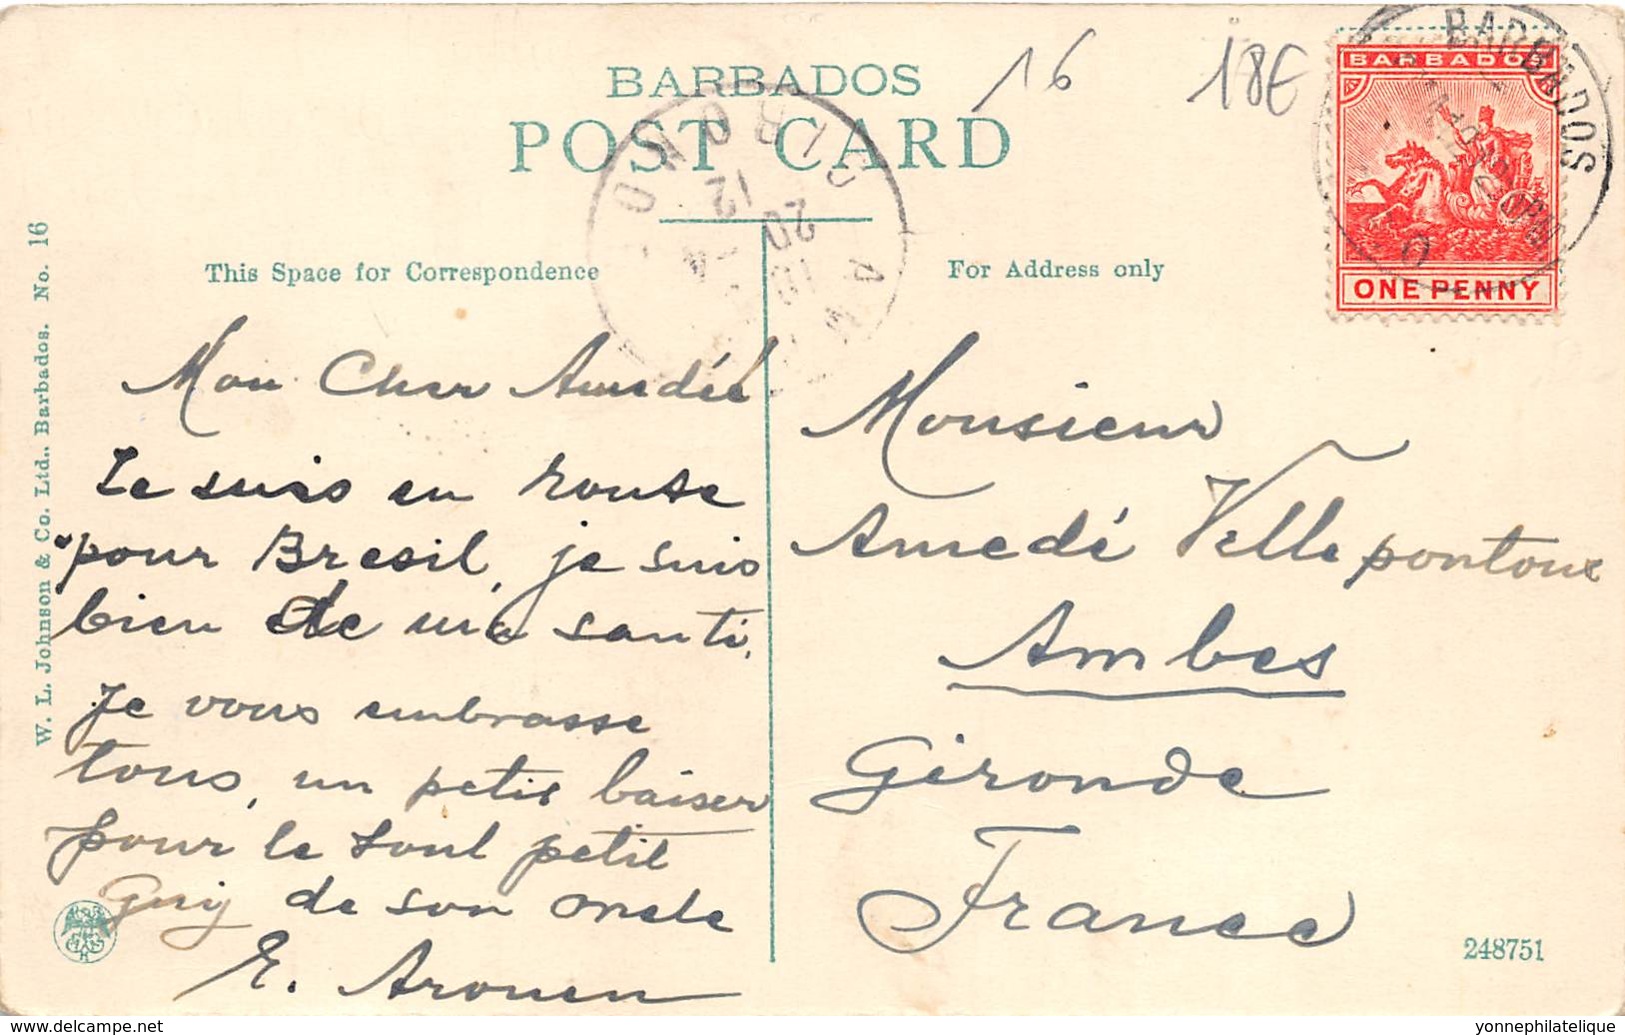 BARBADOS
POST CARD
16
18E
BARBADOS
BARBADOS
ONE PENNY
GIRONDE
12
20
AM
This Space for Correspondence
For Address only
W. L. Johnson & Co. Ltd., Barbados. No. 16
Mon Cher Amedée
Je suis en route
pour Bresil, je suis
bien de
santé.
Je vous embrasse
tous, un petit baiser
pour le tout petit
Guy de son oncle
E. Arouen
Monsieur
Amedé Vellepontoux
Ambes
Gironde
France
248751
yonnephilatelie.delcampe.net
yonnephilatelie@delcampe